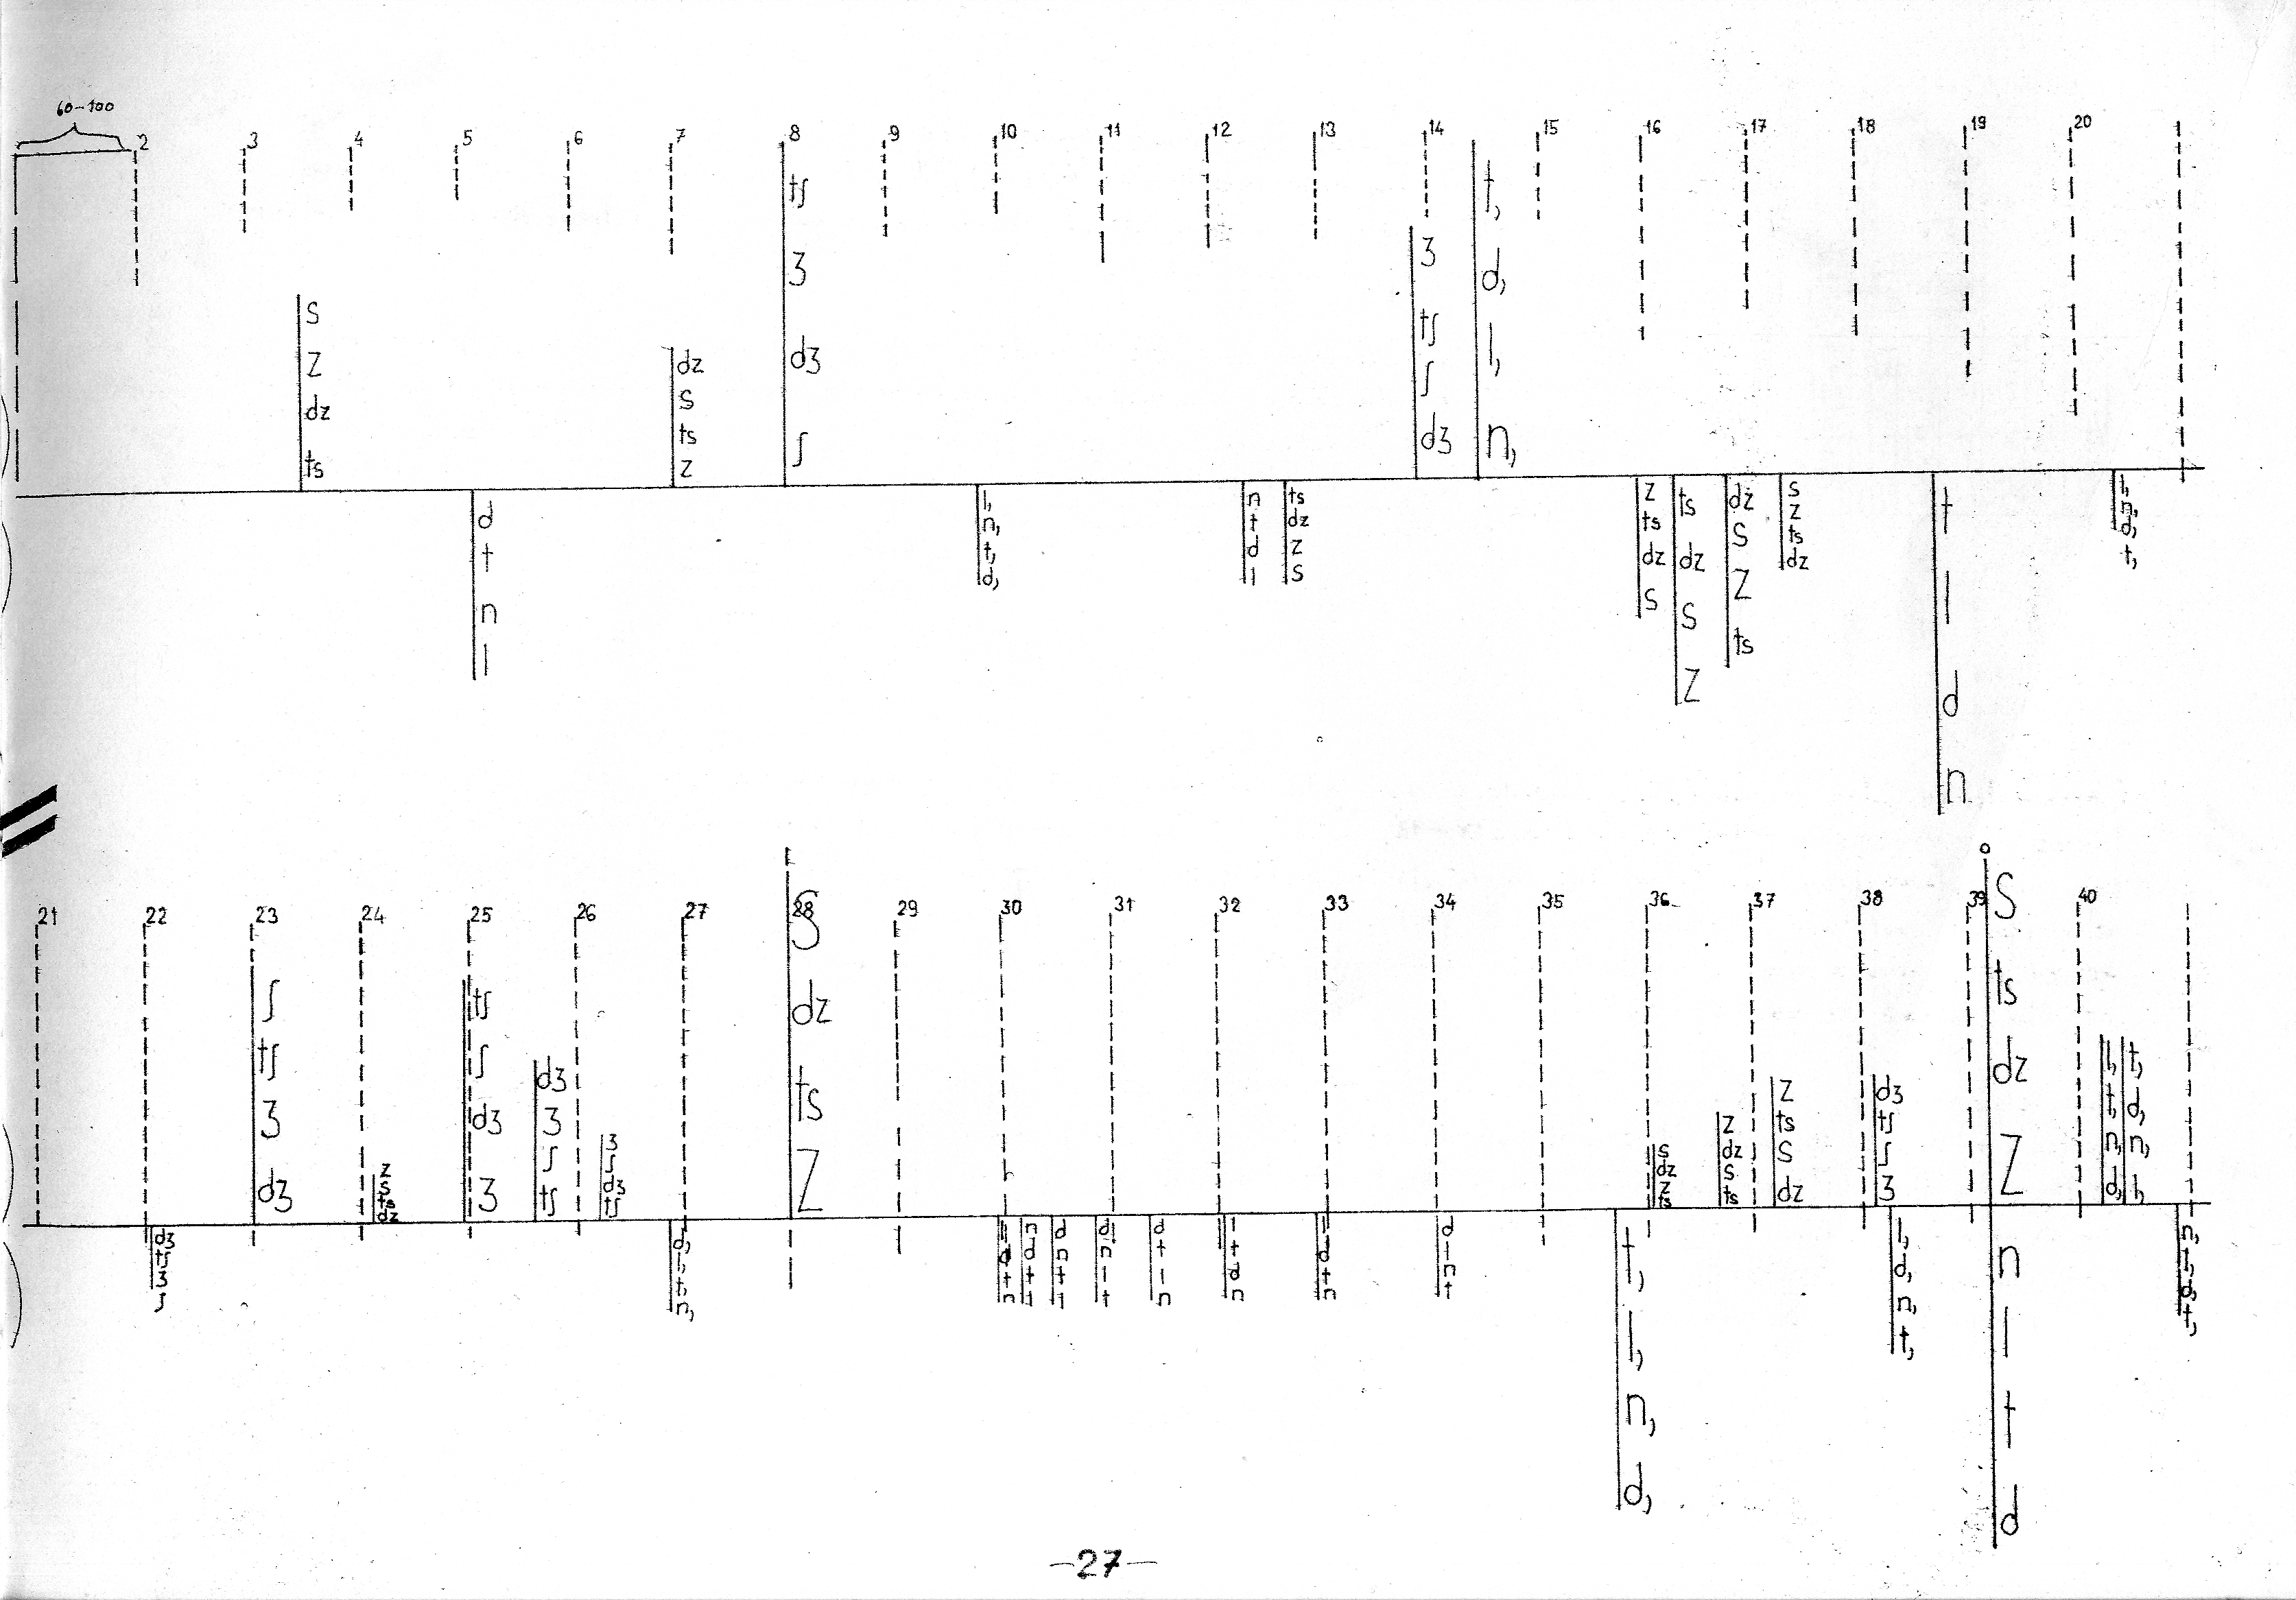 60-100
2 3 4 5 6 7 8 9 10 11 12 13 14 15 16 17 18 19 20
s z dz ts
d t n l
dz s ts z
tʃ ʒ dʒ ʃ
l, n, t, d,
n t d l
ts dz z s
ʒ tʃ ʃ dʒ
t, d, l, n,
z ts dz s
ts dz s z
dz s z ts
s z ts dz
t l d n
l, n, d, t,
21 22 23 24 25 26 27 28 29 30 31 32 33 34 35 36 37 38 39 40
dʒ tʃ ʒ ʃ
ʃ tʃ ʒ dʒ
z s ts dz
tʃ ʃ dʒ ʒ
dʒ ʒ ʃ tʃ
ʒ ʃ dʒ tʃ
d, l, t, n,
s dz ts z
l d t n
n d t l
d n t l
d n l t
d t l n
l t d n
l d t n
d l n t
t, l, n, d,
s dz z ts
z dz s ts
z ts s dz
dʒ tʃ ʃ ʒ
l, d, n, t,
s ts dz z
n l t d
l, t, n, d,
t, d, n, l,
n, l, d, t,
-27-